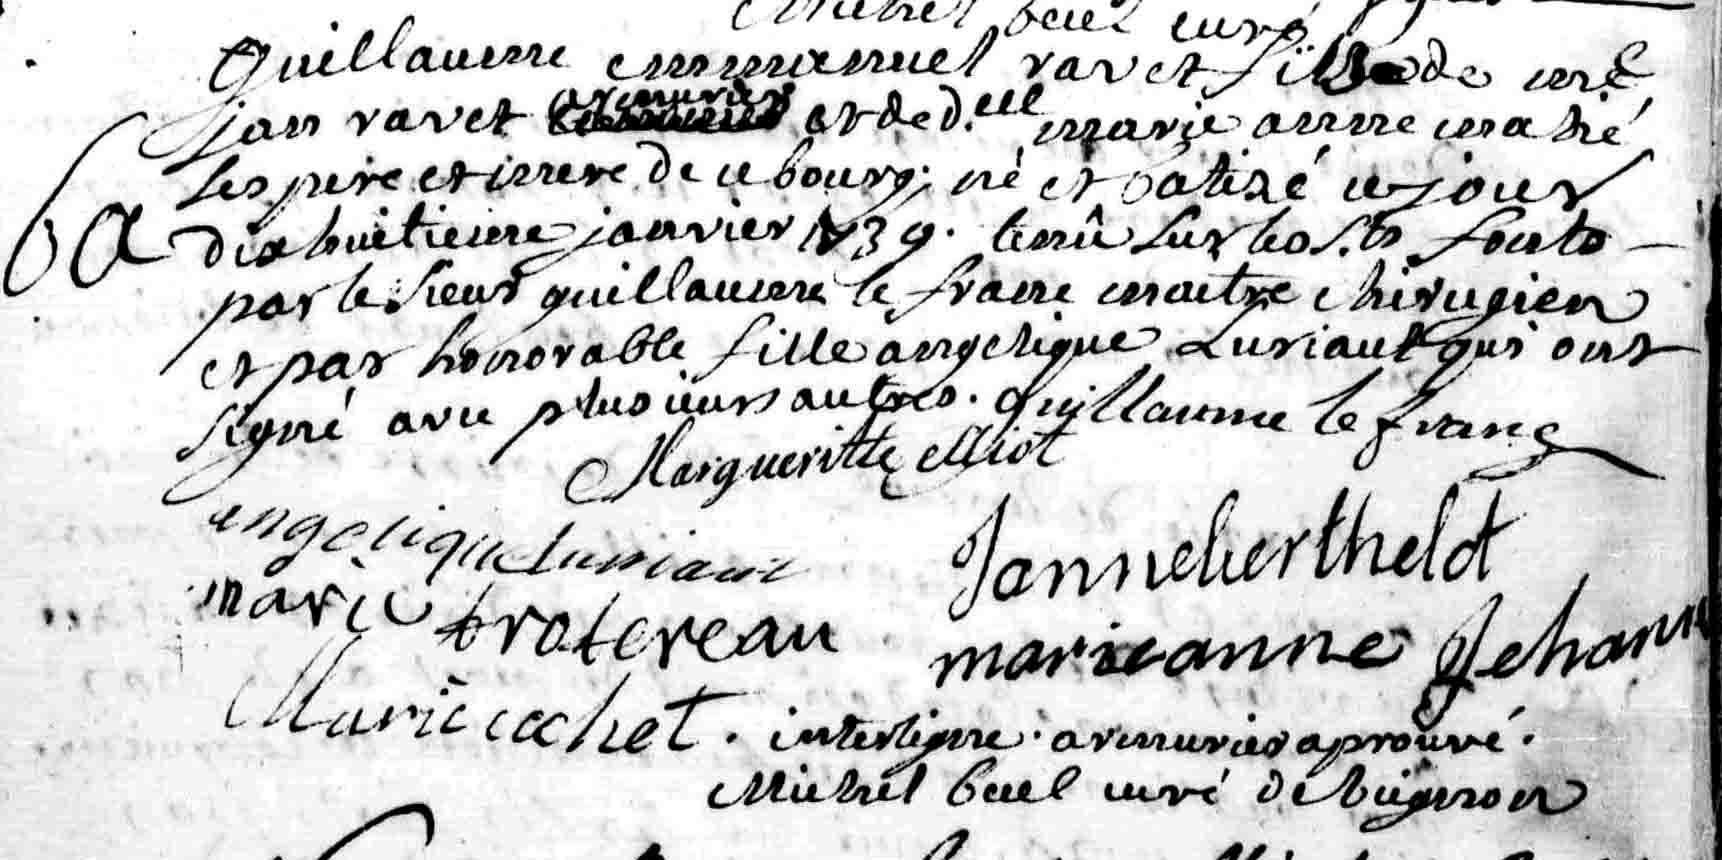 Michel buel curé
Guillaume emmanuel ravet fils de me
jan ravet armurier et de d.elle marie anne mahé
ses pere et mere de ce bourg. né et batizé ce jour
dix huitieme janvier 1739. tenû sur les sts fonts
par le sieur guillaume le franc maitre chirugien
et par honorable fille angelique Luriaut qui ont
signé avec plusieurs autres. guillaume le franc
Margueritte
angelique Luriaut
Janne berthelot
marie trotereau
marieanne Jehanne
Marie cochet. interligne. armurier aprouvé.
Michel buel curé de bignon